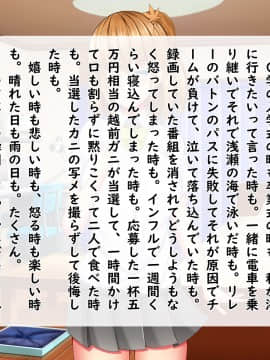 に行きたいって言った時も。一緒に電車を乗
り継いでそれで浅瀬の海で泳いだ時も。リレ
ーのバトンのパスに失敗してそれが原因でチ
ームが負けて、泣いて落ち込んでいた時も。
録画していた番組を消されてどうしようもな
く怒ってしまった時も。インフルで一週間く
らい寝込んでしまった時も。応募した一杯五
万円相当の越前ガニが当選して、一時間かけ
てロも割らずに黙りこくって二人で食べた時
も。当選したカニの写メを撮らずして後悔し
た時も。
嬉しい時も悲しい時も、怒る時も楽しい時
も。晴れた日も雨の日も。たくさん。